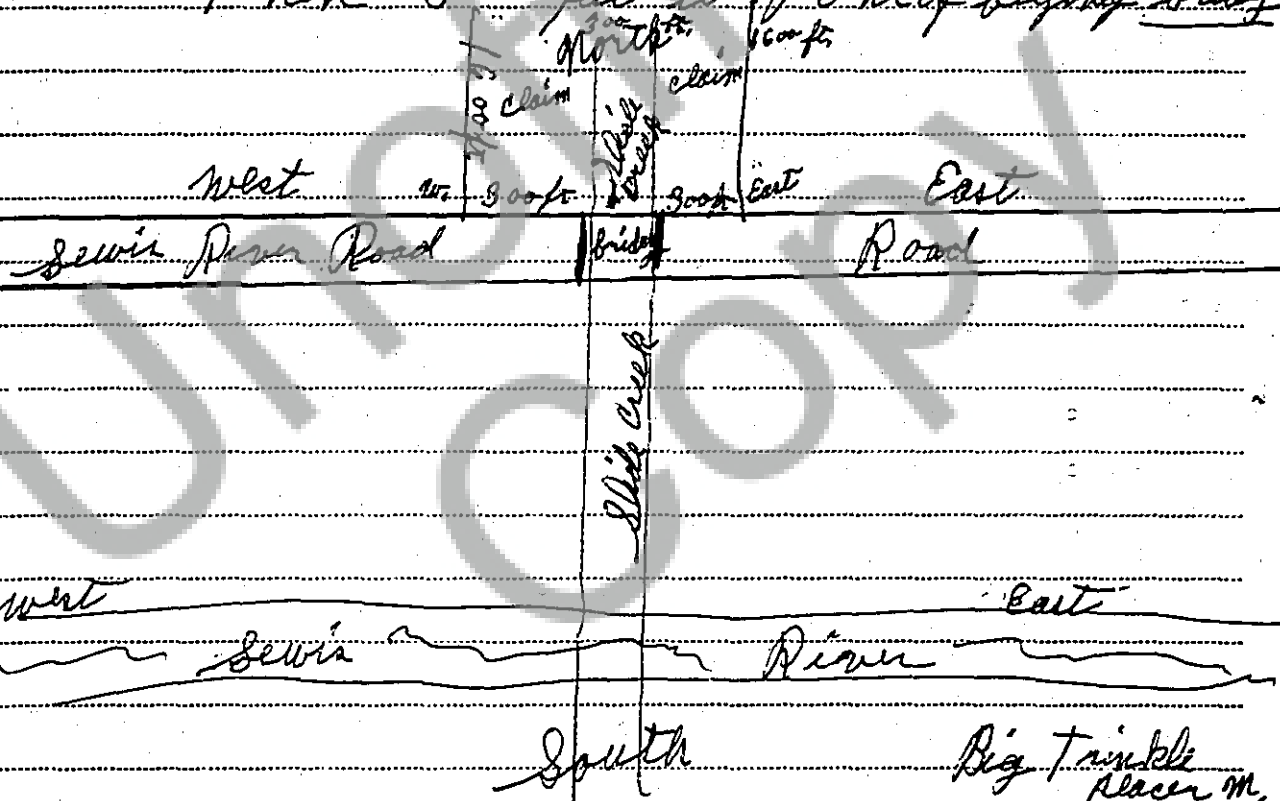 300 ft.
North
1600 ft.
claim
claim
Slide Creek
West
W. 300 ft
300 ft East
East
Lewis River Road
bridge
Road
Slide Creek
West
East
Lewis River
South
Big Trinkle
Placer M.
Unofficial
Copy